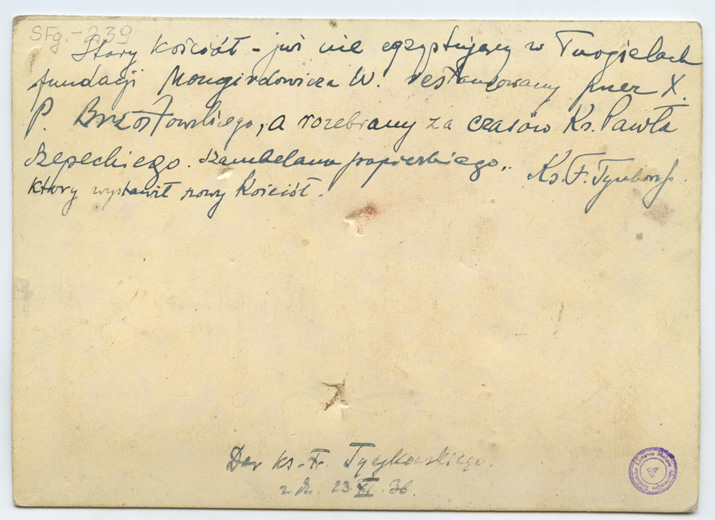 SFg.-239
Stary Kościół - już nie egzystujący w Turgielach
fundacji Mongirdowicza W. restaurowany przez X.
P. Brzostowskiego, a rozebrany za czasów Ks. Pawła
Szepeckiego. szambelana papieskiego,.
który wystawił nowy Kościół.
Ks. F.
Dar Ks. F. Tyczkowskiego.
z d. 23 XI. 36.